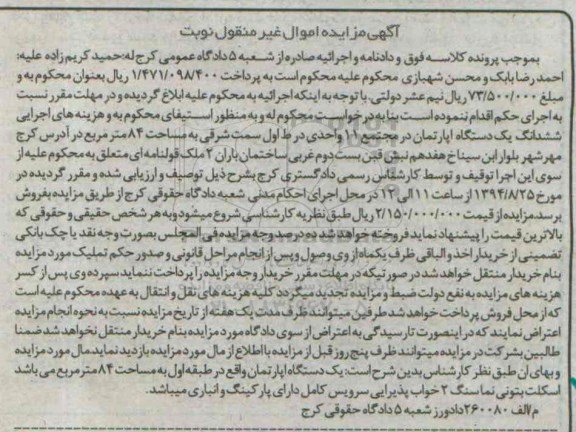 آگهی مزایده اموال غیر منقول نوبت
بموجب پرونده کلاسه فوق و دادنامه و اجرائیه صادره از شعبه ۵ دادگاه عمومی کرج له:حمید کریم زاده علیه:
احمدرضا بابک و محسن شهبازی محکوم علیه محکوم است به پرداخت ۱/۴۷۱/۰۹۸/۴۰۰ ریال بعنوان محکوم به و
مبلغ ۷۳/۵۰۰/۰۰۰ ریال نیم عشر دولتی. با توجه به اینکه اجرائیه به محکوم علیه ابلاغ گردیده و در مهلت مقرر نسبت
به اجرای حکم اقدام ننموده است بنا به درخواست محکوم له و به منظور استیفای محکوم به و هزینه های اجرایی
ششدانگ یک دستگاه اپارتمان در مجتمع ۱۱ واحدی در ط اول سمت شرقی به مساحت ۸۴ متر مربع در آدرس کرج
مهرشهر بلوار ابن سینا خ هفدهم نبش فین بست دوم غربی ساختمان باران ۲ ملک قولنامه ای متعلق به محکوم علیه از
سوی این اجرا توقیف و توسط کارشناس رسمی دادگستری کرج بشرح ذیل توصیف و ارزیابی شده و مقرر گردیده در
مورخ ۱۳۹۴/۸/۲۵ از ساعت ۱۱ الی ۱۲ در محل اجرای احکام مدنی شعبه دادگاه حقوقی کرج از طریق مزایده بفروش
برسد.مزایده از قیمت ۲/۱۵۰/۰۰۰/۰۰۰ ریال طبق نظریه کارشناسی شروع میشود و به هر شخص حقیقی و حقوقی که
بالاترین قیمت را پیشنهاد نماید فروخته خواهد شد ده درصد وجه مزایده فی المجلس بصورت وجه نقد یا چک بانکی
تضمینی از خریدار اخذ و الباقی ظرف یکماه از وی وصول و پس از انجام مراحل قانونی و صدور حکم تملیک مورد مزایده
بنام خریدار منتقل خواهد شد در صورتیکه در مهلت مقرر خریدار وجه مزایده را پرداخت ننماید سپرده وی پس از کسر
هزینه های مزایده به نفع دولت ضبط و مزایده تجدید میگردد کلیه هزینه های نقل و انتقال به عهده محکوم علیه است
که از محل فروش پرداخت خواهد شد طرفین میتوانند ظرف مدت یک هفته از تاریخ مزایده نسبت به نحوه انجام مزایده
اعتراض نمایند که در اینصورت تا رسیدگی به اعتراض از سوی دادگاه مورد مزایده بنام خریدار منتقل نخواهد شد ضمنا
طالبین بشرکت در مزایده میتوانند ظرف پنج روز قبل از مزایده با اطلاع از مال مورد مزایده بازدید نماید مال مورد مزایده
و بهای آن طبق نظر کارشناس بدین شرح است: یک دستگاه اپارتمان واقع در طبقه اول به مساحت ۸۴ متر مربع می باشد
اسکلت بتونی نما سنگ ۲ خواب پذیرایی سرویس کامل دارای پارکینگ و انباری میباشد.
م/الف ۲۶۰۰۸۰ دادورز شعبه ۵ دادگاه حقوقی کرج